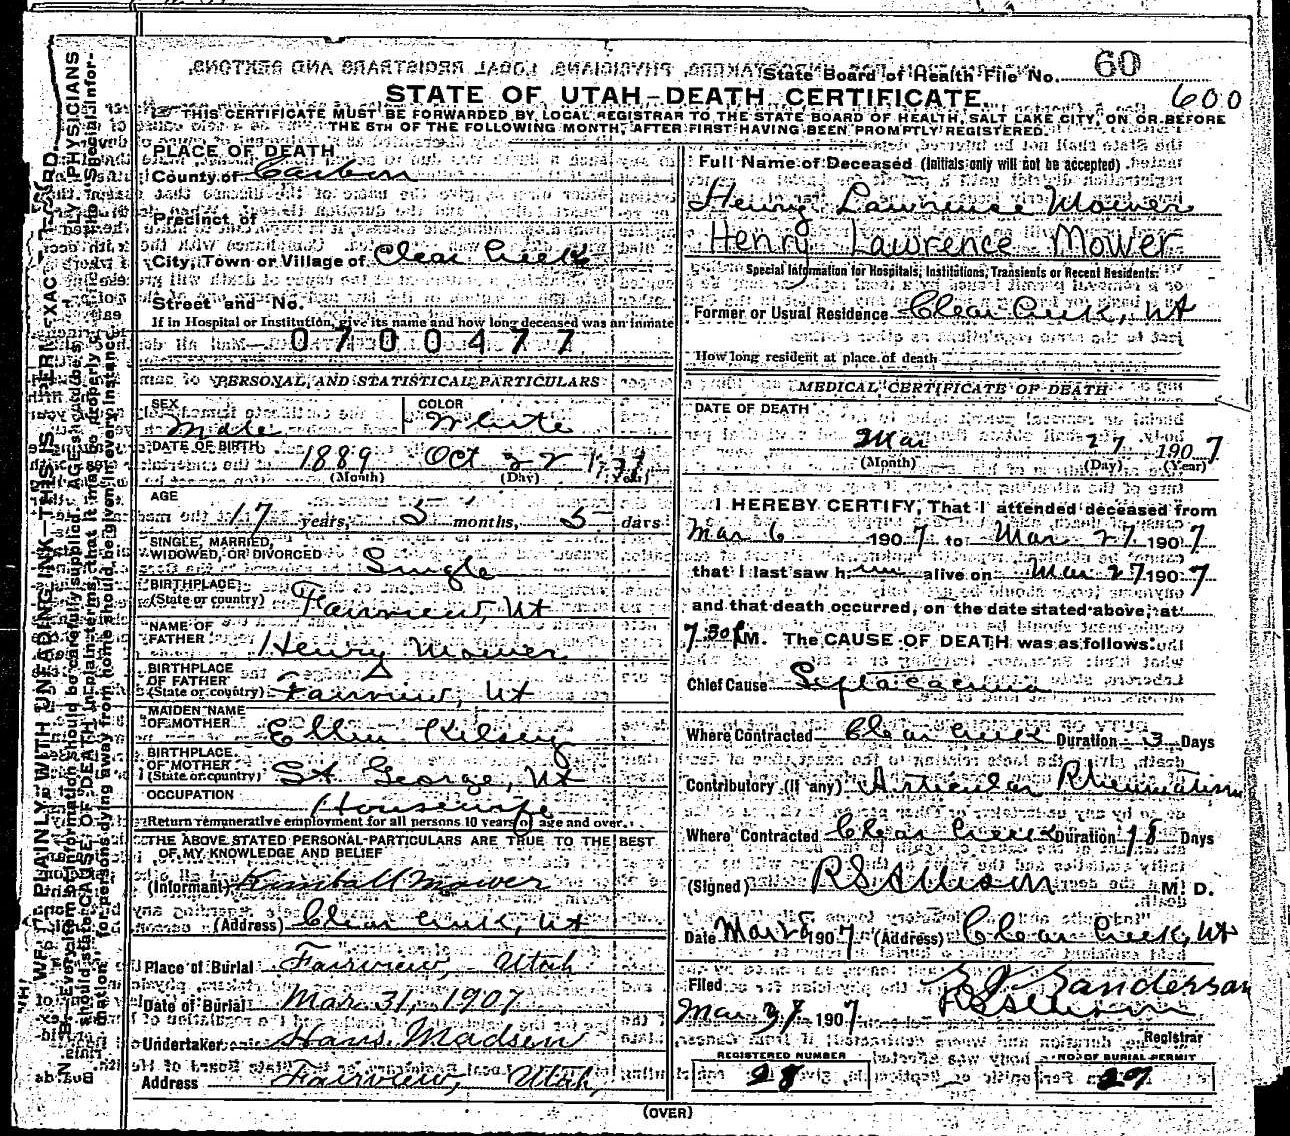 State Board of Health File No. 60
600
STATE OF UTAH-DEATH CERTIFICATE.
THIS CERTIFICATE MUST BE FORWARDED BY LOCAL REGISTRAR TO THE STATE BOARD OF HEALTH, SALT LAKE CITY, ON OR BEFORE
THE 5TH OF THE FOLLOWING MONTH, AFTER FIRST HAVING BEEN PROMPTLY REGISTERED.
PLACE OF DEATH
County of Carbon
Precinct of
City, Town or Village of Clear Creek
Street and No.
If in Hospital or Institution, give its name and how long deceased was an inmate
0700477
PERSONAL AND STATISTICAL PARTICULARS
SEX Male COLOR White
DATE OF BIRTH 1889 Oct 22
(Month) (Day) (Year)
AGE
17 years, 5 months, 5 days
SINGLE, MARRIED,
WIDOWED, OR DIVORCED Single
BIRTHPLACE
(State or country) Fairview, Ut
NAME OF
FATHER Henry Mower
BIRTHPLACE
OF FATHER
(State or country) Fairview, Ut
MAIDEN NAME
OF MOTHER Ellen Kelsey
BIRTHPLACE
OF MOTHER
(State or country) St George, Ut
OCCUPATION Housewife
Return remunerative employment for all persons 10 years of age and over.
THE ABOVE STATED PERSONAL PARTICULARS ARE TRUE TO THE BEST
OF MY KNOWLEDGE AND BELIEF
(Informant) Kimball Mower
(Address) Clear Creek, Ut
Place of Burial Fairview, Utah
Date of Burial Mar 31, 1907
Undertaker Hans Madsen
Address Fairview, Utah
Full Name of Deceased (Initials only will not be accepted)
Henry Lawrence Mower
Henry Lawrence Mower
Special Information for Hospitals, Institutions, Transients or Recent Residents:
Former or Usual Residence Clear Creek, Ut
How long resident at place of death
MEDICAL CERTIFICATE OF DEATH
DATE OF DEATH
Mar 27 1907
(Month) (Day) (Year)
I HEREBY CERTIFY, That I attended deceased from
Mar 6 1907 to Mar 27 1907
that I last saw him alive on Mar 27 1907
and that death occurred, on the date stated above, at
7.30 P.M. The CAUSE OF DEATH was as follows:
Chief Cause Septacaemia
Where Contracted Clear Creek Duration 3 Days
Contributory (If any) Articular Rheumatism
Where Contracted Clear Creek Duration 18 Days
(Signed) R S Allison M. D.
Date Mar 28 1907 (Address) Clear Creek, Ut
Filed
Sanderson
Mar 1907 R S Allison
Registrar
REGISTERED NUMBER 28
NO. OF BURIAL PERMIT 27
(OVER)
WRITE PLAINLY WITH UNFADING INK—THIS IS
N. B. Every item of information should be carefully supplied. AGE should be stated EXACTLY. PHYSICIANS
should state CAUSE OF DEATH in plain terms, that it may be properly classified. The "Special Infor-
mation" for persons dying away from home should be given in every instance.